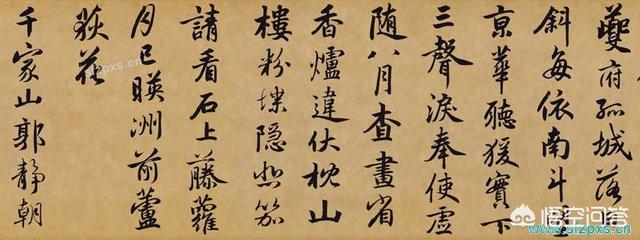 夔府孤城落日
斜每依南斗望
京華聽猨實下
三聲淚奉使虛
隨八月查畫省
香爐違伏枕山
樓粉堞隱悲笳
請看石上藤蘿
月已暎洲前蘆
荻花
千家山郭靜朝
悟空问答